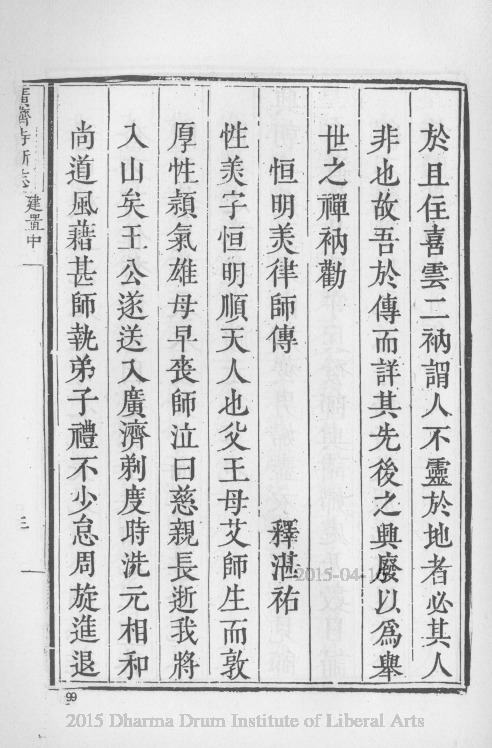 於且住喜雲二衲謂人不靈於地者必其人
非也故吾於傳而詳其先後之興廢以為舉
世之禪衲勸
恒明美律師傳　釋湛祐
性美字恒明順天人也父王母艾師生而敦
厚性穎氣雄母早喪師泣曰慈親長逝我將
入山矣王公遂送入廣濟剃度時洗元相和
尚道風藉甚師執弟子禮不少怠周旋進退
廣濟寺新志 建置中
三
99
2015-04-1
2015 Dharma Drum Institute of Liberal Arts